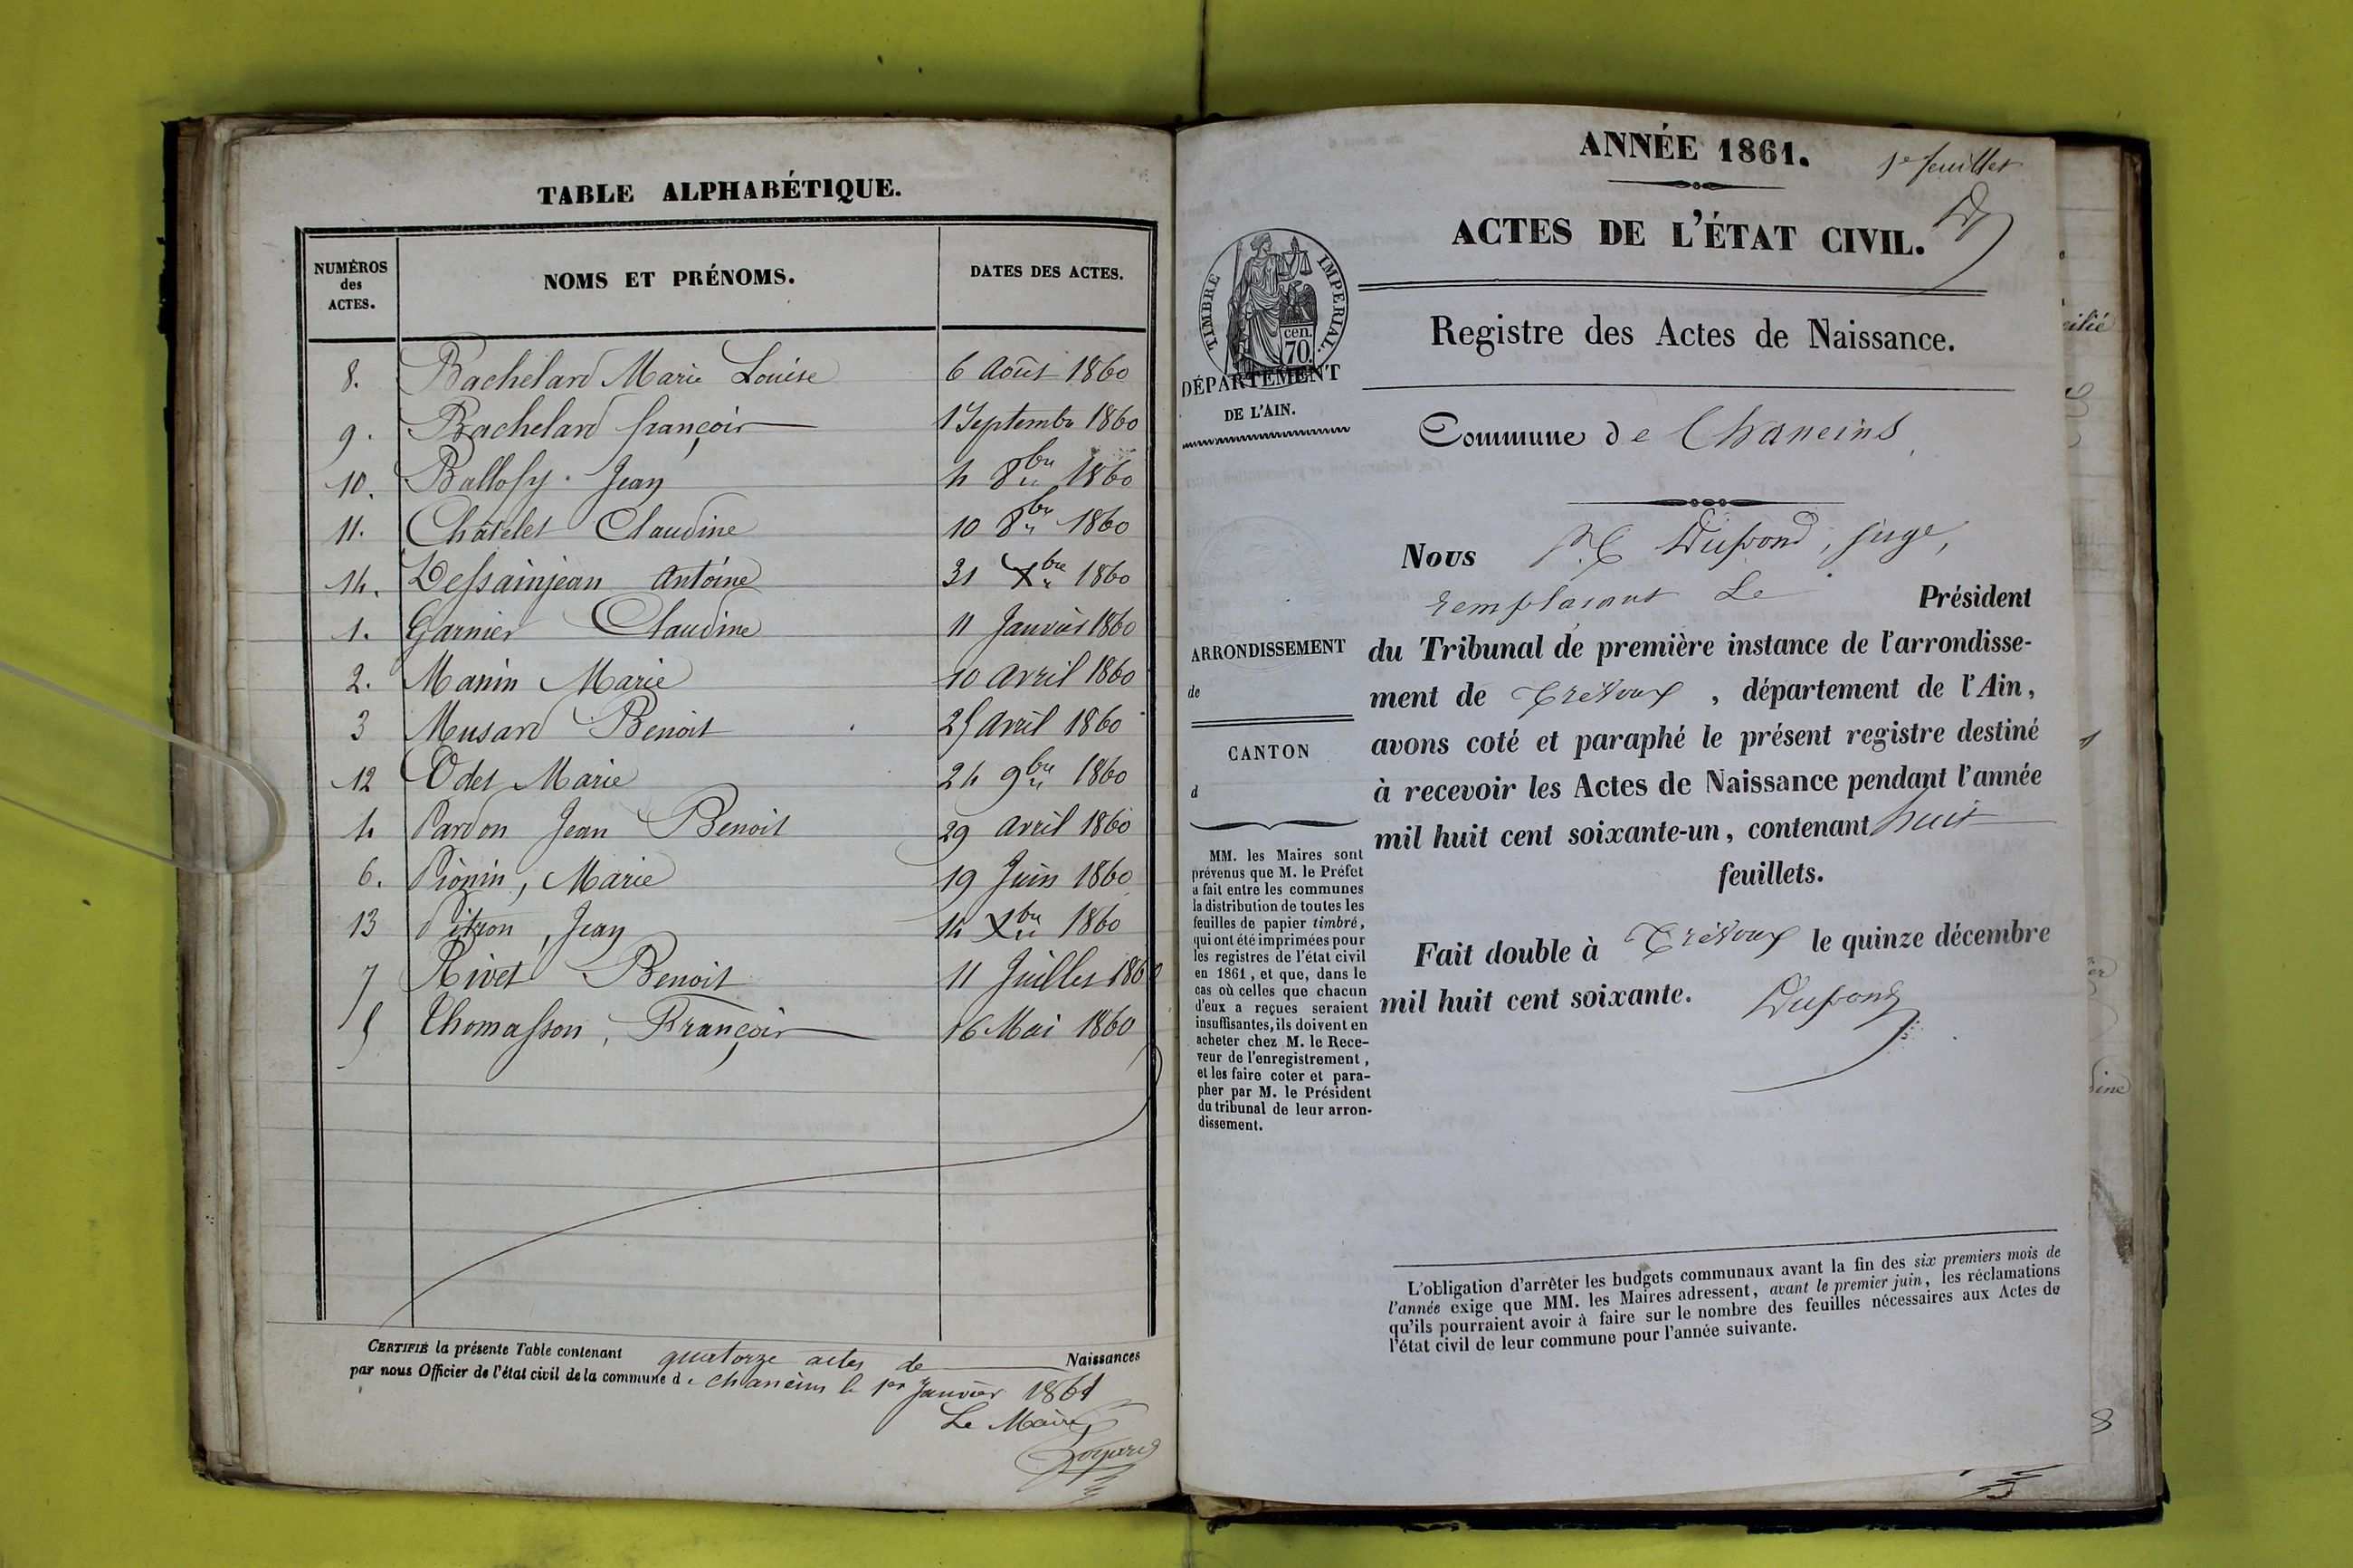 TABLE ALPHABÉTIQUE.
NUMÉROS des ACTES. NOMS ET PRÉNOMS. DATES DES ACTES.
8. Bachelard Marie Louise 6 Août 1860
9. Bachelard françois 1 Septembre 1860
10. Ballofy Jean 4 8bre 1860
11. Châtelet Claudine 10 8bre 1860
14. Dessainjean Antoine 31 Xbre 1860
1. Garnier Claudine 11 Janvier 1860
2. Manin Marie 10 avril 1860
3 Musard Benoit 25 avril 1860
12 Odet Marie 24 9bre 1860
4 Pardon Jean Benoit 29 avril 1860
6. Pionin, Marie 19 Juin 1860
13 Pitron, Jean 14 Xbre 1860
7 Rivet Benoit 11 Juillet 1860
5 Thomasson, François 16 Mai 1860
CERTIFIÉ la présente Table contenant quatorze actes de Naissances
par nous Officier de l'état civil de la commune de Chaneins le 1er Janvier 1861
Le Maire
ANNÉE 1861.
1er feuillet
ACTES DE L'ÉTAT CIVIL.
TIMBRE IMPERIAL.
cen.
70.
DÉPARTEMENT
DE L'AIN.
Registre des Actes de Naissance.
Commune de Chaneins
Nous Dupond, juge,
remplaçant Le Président
du Tribunal de première instance de l'arrondisse-
ment de Trévoux, département de l'Ain,
avons coté et paraphé le présent registre destiné
à recevoir les Actes de Naissance pendant l'année
mil huit cent soixante-un, contenant huit
feuillets.
Fait double à Trévoux le quinze décembre
mil huit cent soixante.
Dupond
ARRONDISSEMENT
de
CANTON
d
MM. les Maires sont
prévenus que M. le Préfet
a fait entre les communes
la distribution de toutes les
feuilles de papier timbré,
qui ont été imprimées pour
les registres de l'état civil
en 1861, et que, dans le
cas où celles que chacun
d'eux a reçues seraient
insuffisantes, ils doivent en
acheter chez M. le Rece-
veur de l'enregistrement,
et les faire coter et para-
pher par M. le Président
du tribunal de leur arron-
dissement.
L'obligation d'arrêter les budgets communaux avant la fin des six premiers mois de
l'année exige que MM. les Maires adressent, avant le premier juin, les réclamations
qu'ils pourraient avoir à faire sur le nombre des feuilles nécessaires aux Actes de
l'état civil de leur commune pour l'année suivante.